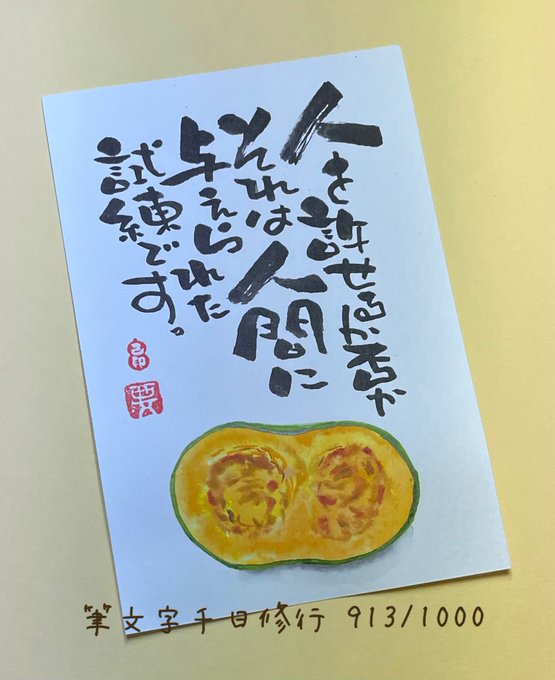 人を許せるか否か
それは人間に
与えられた
試練です。
筆文字千日修行 913/1000